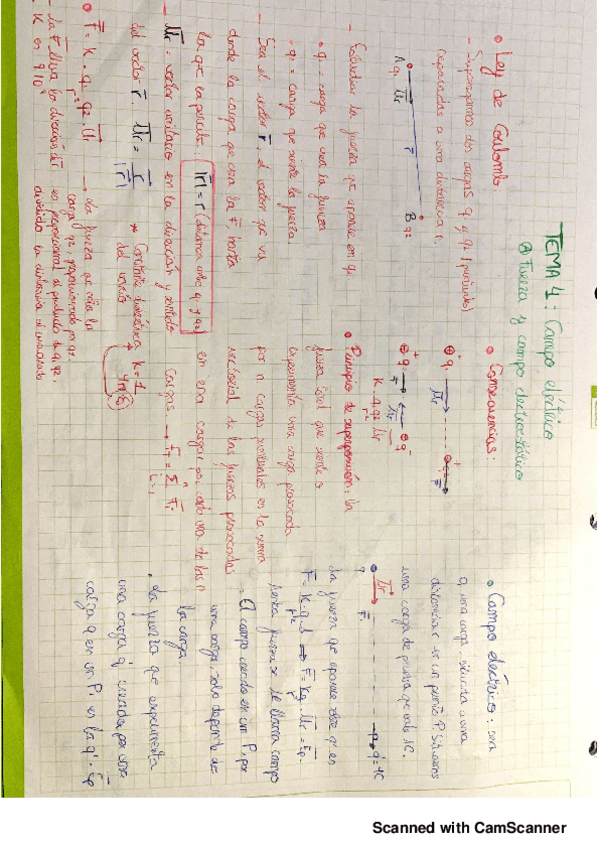 TEMA 1: Campo eléctrico
Ⓐ Fuerza y campo electrostático
• Ley de Coulomb:
- Supongamos dos cargas q1 y q2 (puntuales)
separadas a una distancia r.
A q1 ur r B q2
- Estudiar la fuerza que aparece en q2
• q1 = carga que crea la fuerza
• q2 = carga que siente la fuerza
- Sea el vector r, el vector que va
desde la carga que crea la F, hasta
la que la percibe. |r| = r (distancia entre q1 y q2)
- ur = vector unitario en la dirección y sentido
del vector r. ur = r / |r|
* Constante dieléctrica K = 1 / 4πε
del vacío
• F = K · q1 q2 / r² ur → La fuerza que
carga q2 proporcionada por q1
es proporcional al producto de q1 q2
dividido la distancia al cuadrado
- la F lleva la dirección ur
K es 9·10⁹
• Consecuencias:
⊕ q1 ur
K q1 q2 / r² ur
• Principio de superposición: la
fuerza total que siente o
experimenta una carga provocada
por n cargas puntuales es la suma
vectorial de las fuerzas provocadas
en esa carga por cada una de las n
cargas. → FT = Σ Fi
i=1
• Campo eléctrico: sea
q una carga ejercida a una
distancia r en un punto P situamos
una carga de prueba que vale 1C.
q ur F P q'=1C
La fuerza que aparece sobre q' es
F = K · q · 1 / r² → F = K q / r² ur = Ep
dicha fuerza se le llama campo
A campo creado en un P, por
una carga, solo depende de
la carga
• La fuerza que experimenta
una carga q' creada por una
carga q en un P, es la q' · Ep
Scanned with CamScanner